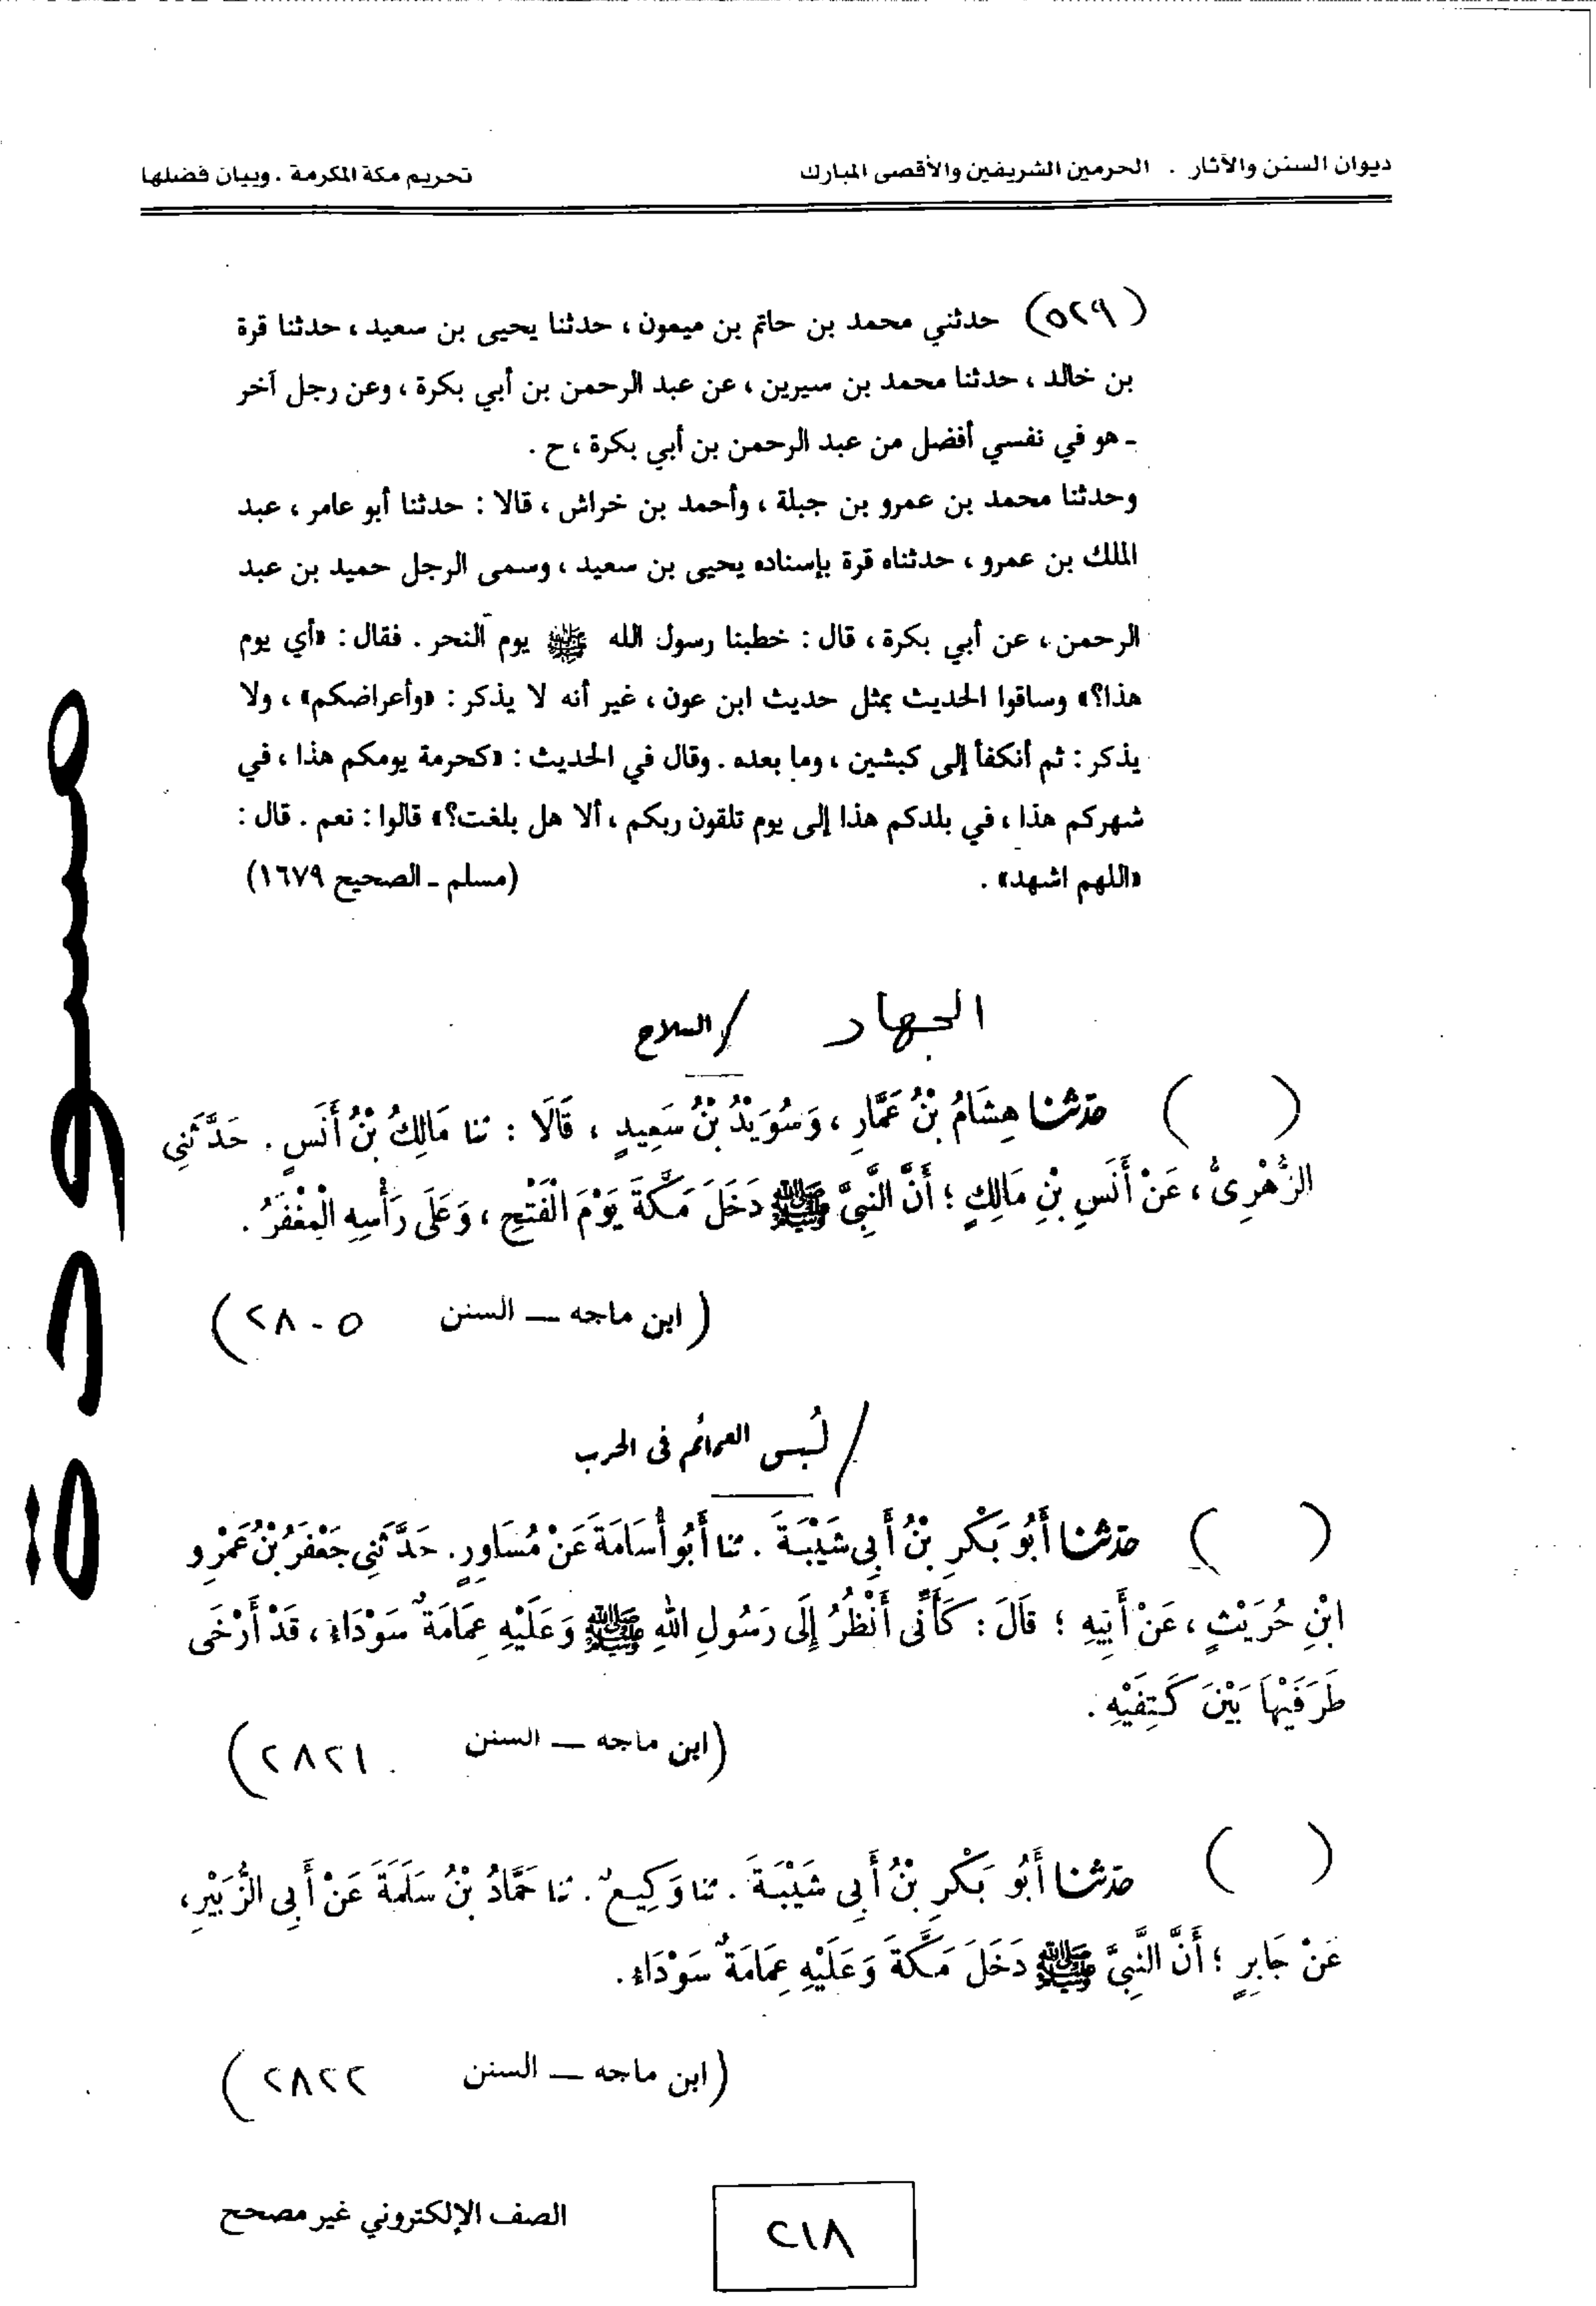 ديوان السنن والآثار . الحرمين الشريفين والأقصى المبارك
تحريم مكة المكرمة . وبيان فضلها
(٥٢٩) حدثني محمد بن حاتم بن ميمون ، حدثنا يحيى بن سعيد ، حدثنا قرة
بن خالد ، حدثنا محمد بن سيرين ، عن عبد الرحمن بن أبي بكرة ، وعن رجل آخر
ـ هو في نفسي أفضل من عبد الرحمن بن أبي بكرة ، ح .
وحدثنا محمد بن عمرو بن جبلة ، وأحمد بن خراش ، قالا : حدثنا أبو عامر ، عبد
الملك بن عمرو ، حدثناه قرة بإسناده يحيى بن سعيد ، وسمى الرجل حميد بن عبد
الرحمن ، عن أبي بكرة ، قال : خطبنا رسول الله ﷺ يوم النحر . فقال : «أي يوم
هذا؟» وساقوا الحديث بمثل حديث ابن عون ، غير أنه لا يذكر : «وأعراضكم» ، ولا
يذكر : ثم أنكفأ إلى كبشين ، وما بعده . وقال في الحديث : «كحرمة يومكم هذا ، في
شهركم هذا ، في بلدكم هذا إلى يوم تلقون ربكم ، ألا هل بلغت؟» قالوا : نعم . قال :
«اللهم اشهد» . (مسلم ـ الصحيح ١٦٧٩)
الجهاد / السلاح
( ) حدثنا هِشَامُ بْنُ عَمَّارٍ ، وَسُوَيْدُ بْنُ سَعِيدٍ ، قَالَا : ثنا مَالِكُ بْنُ أَنَسٍ . حَدَّثَنِي
الزُّهْرِىُّ ، عَنْ أَنَسِ بْنِ مَالِكٍ ؛ أَنَّ النَّبِيَّ ﷺ دَخَلَ مَكَّةَ يَوْمَ الْفَتْحِ ، وَعَلَى رَأْسِهِ الْمِغْفَرُ .
(ابن ماجه — السنن ٢٨٠٥)
/ لُبس العمائم فى الحرب
( ) حدثنا أَبُو بَكْرِ بْنُ أَبِى شَيْبَةَ . ثنا أَبُو أُسَامَةَ عَنْ مُسَاوِرٍ . حَدَّثَنِى جَعْفَرُ بْنُ عَمْرِو
ابْنِ حُرَيْثٍ ، عَنْ أَبِيهِ ؛ قَالَ : كَأَنِّى أَنْظُرُ إِلَى رَسُولِ اللهِ ﷺ وَعَلَيْهِ عِمَامَةٌ سَوْدَاءُ ، قَدْ أَرْخَى
طَرَفَيْهَا بَيْنَ كَتِفَيْهِ .
(ابن ماجه — السنن ٢٨٢١)
( ) حدثنا أَبُو بَكْرِ بْنُ أَبِى شَيْبَةَ . ثنا وَكِيعٌ . ثنا حَمَّادُ بْنُ سَلَمَةَ عَنْ أَبِى الزُّبَيْرِ ،
عَنْ جَابِرٍ ؛ أَنَّ النَّبِيَّ ﷺ دَخَلَ مَكَّةَ وَعَلَيْهِ عِمَامَةٌ سَوْدَاءُ .
(ابن ماجه — السنن ٢٨٢٢)
الصف الإلكتروني غير مصحح
٢١٨
مسودة